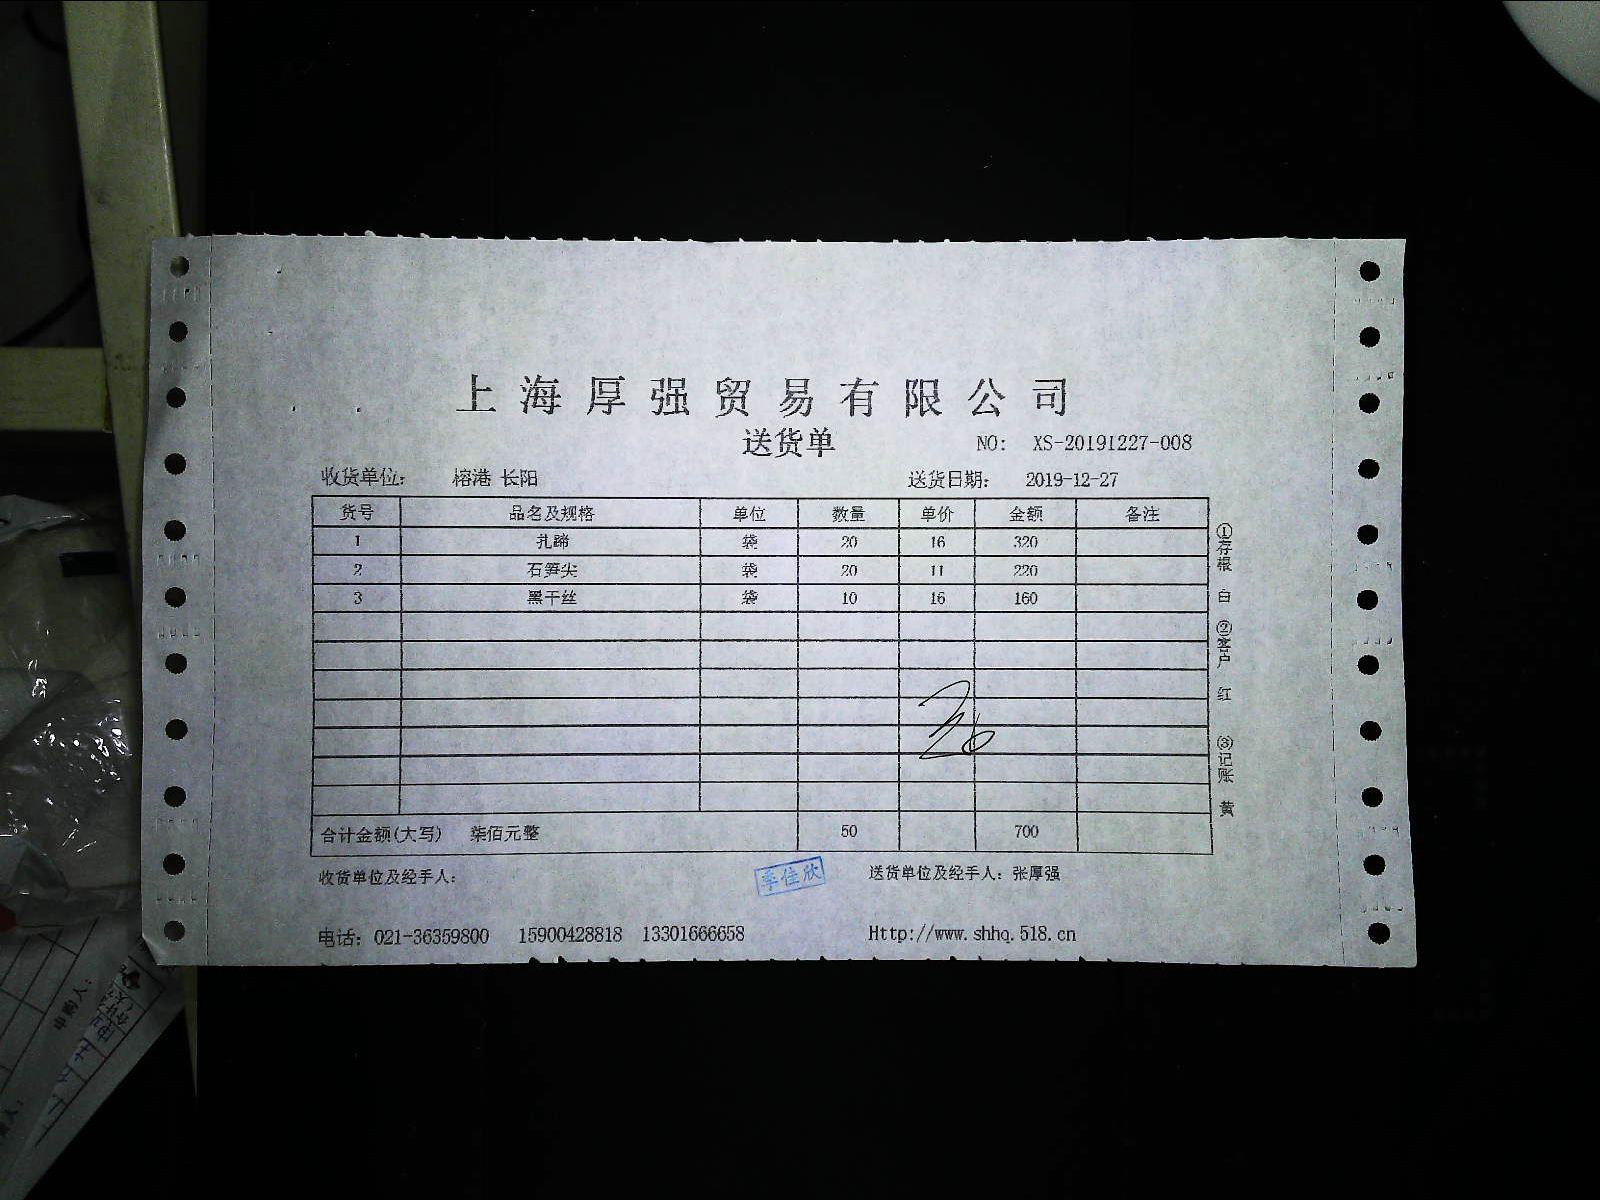 上海厚强贸易有限公司
送货单 NO: XS-20191227-008
收货单位: 榕港 长阳 送货日期: 2019-12-27
货号 品名及规格 单位 数量 单价 金额 备注
1 扎蹄 袋 20 16 320
2 石笋尖 袋 20 11 220
3 黑干丝 袋 10 16 160
合计金额(大写) 柒佰元整 50 700
收货单位及经手人: 季佳欣 送货单位及经手人: 张厚强
电话: 021-36359800 15900428818 13301666658 Http://www.shhq.518.cn
①存根 白 ②客户 红 ③记账 黄
申购人: